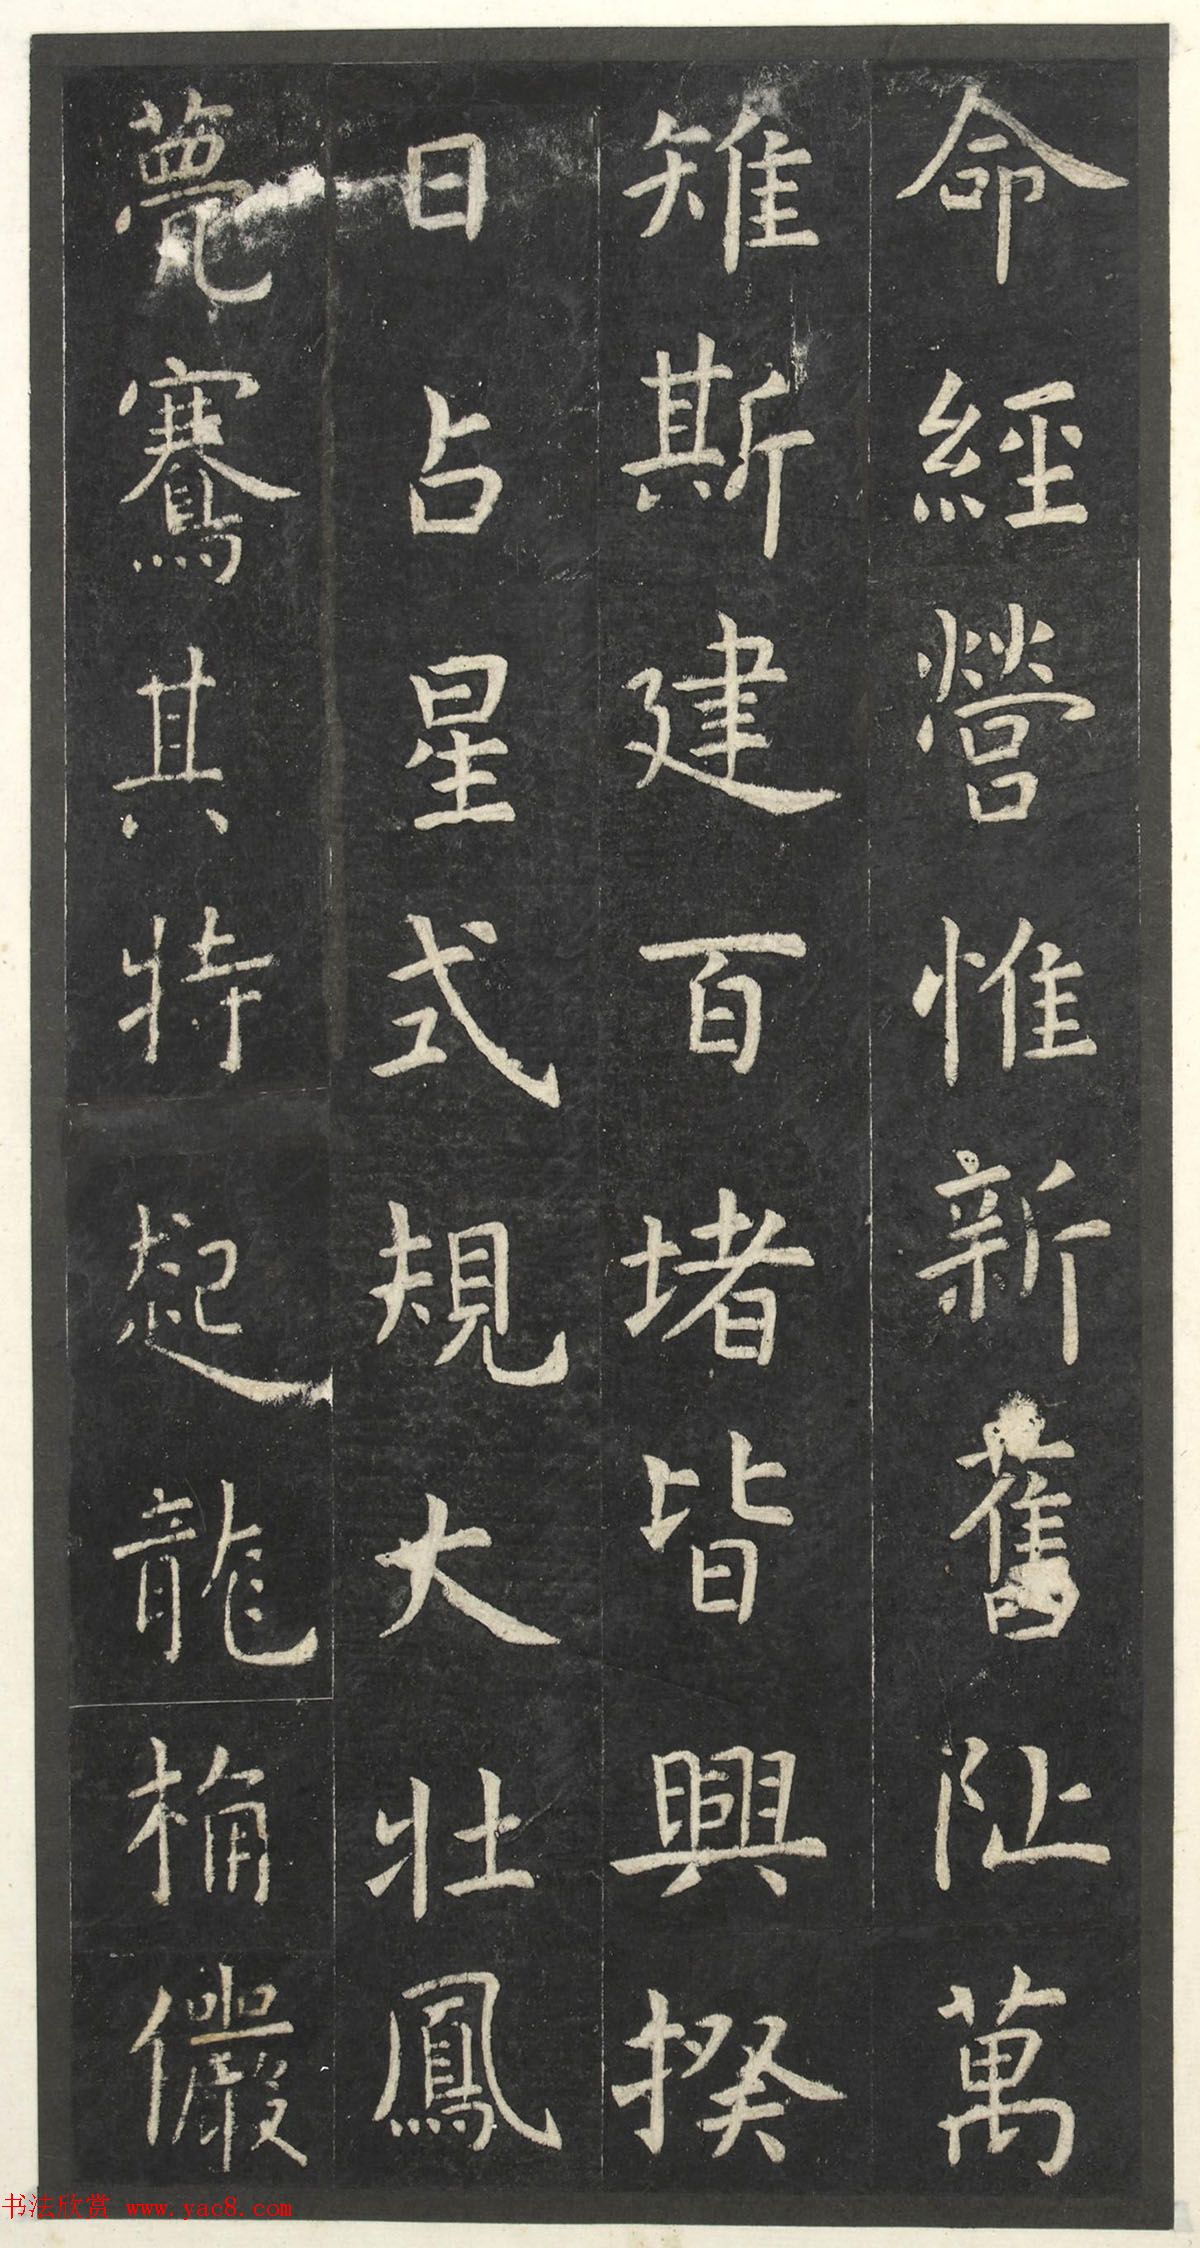 命經營惟新舊阯萬
雉斯建百堵皆興揆
日占星式規大壯鳳
甍鶱其特起龍桷儼
书法欣赏 www.yac8.com